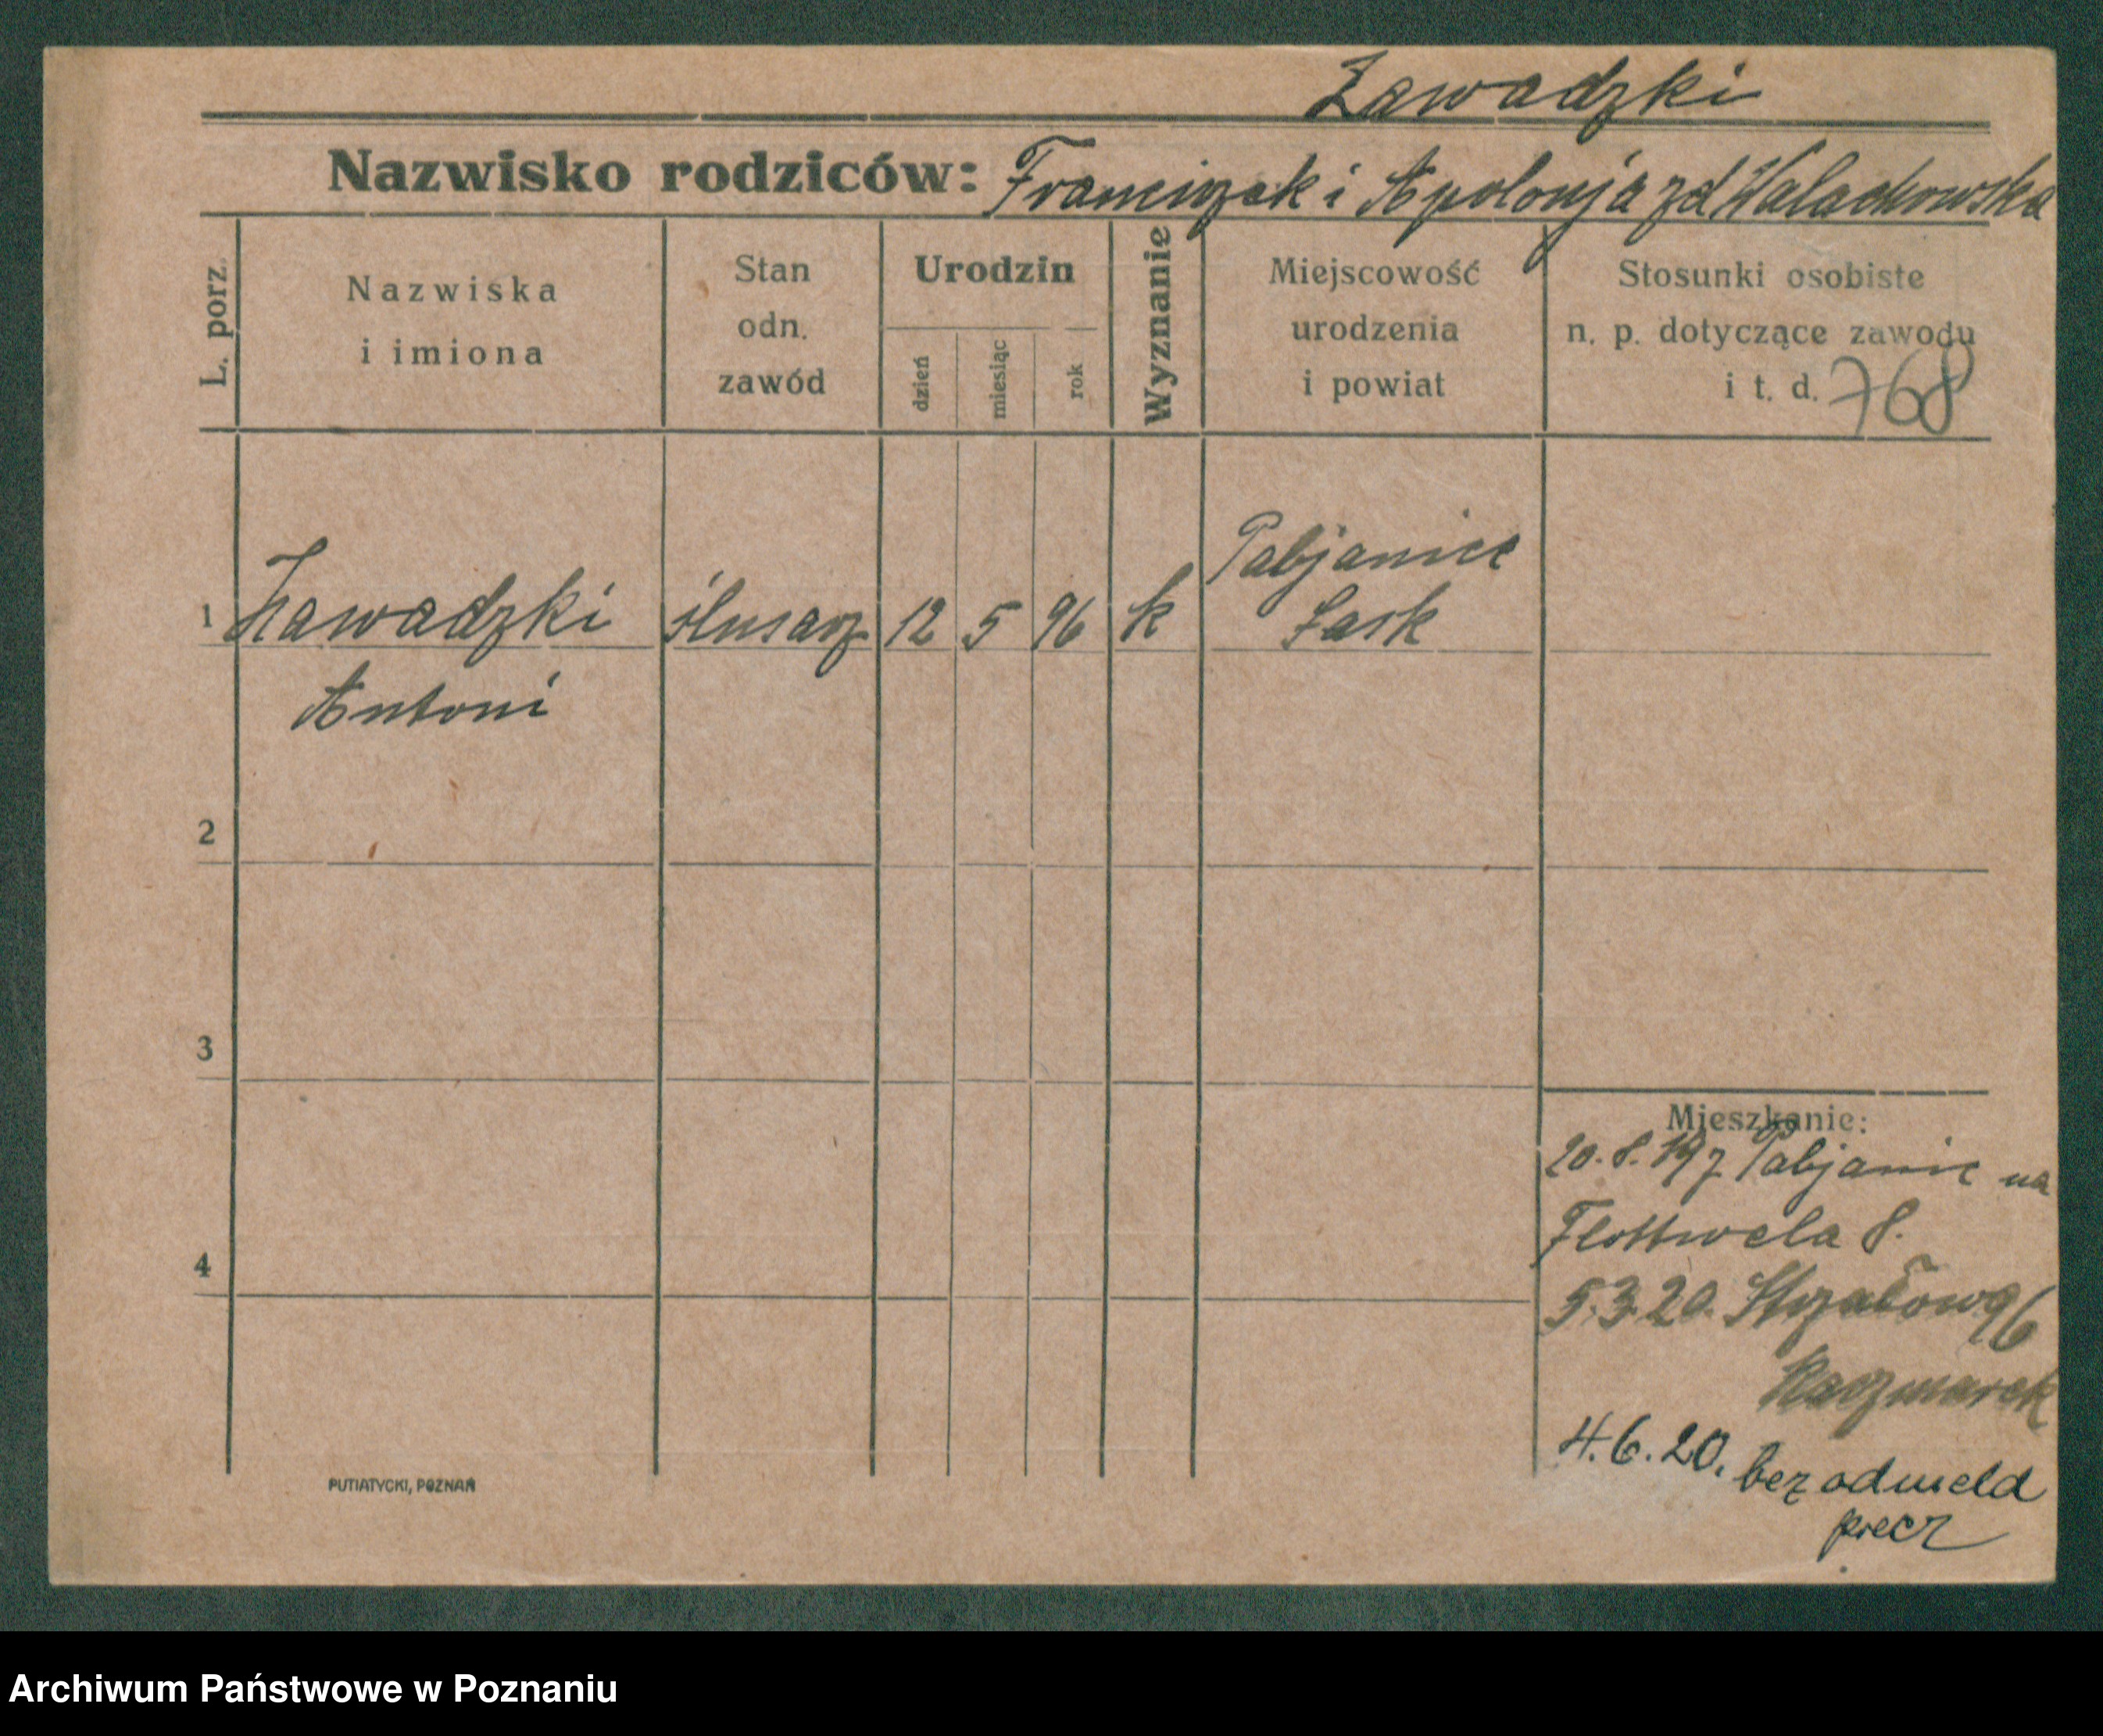 Zawadzki
Nazwisko rodziców: Franciszek i Apolonja zd Walachowska
L. porz.
Nazwiska
i imiona
Stan
odn.
zawód
Urodzin
dzień
miesiąc
rok
Wyznanie
Miejscowość
urodzenia
i powiat
Stosunki osobiste
n. p. dotyczące zawodu
i t. d. 768
Pabjanice
1 Zawadzki ślusarz 12 5 96 k Łask
Antoni
2
3
4
Mieszkanie:
20.8.19 z Pabjanic na
Flottwela 8.
5.3.20. Strzałowa 6
Kaczmarek
4.6.20. bez odmeld
precz
PUTIATYCKI, POZNAŃ
Archiwum Państwowe w Poznaniu